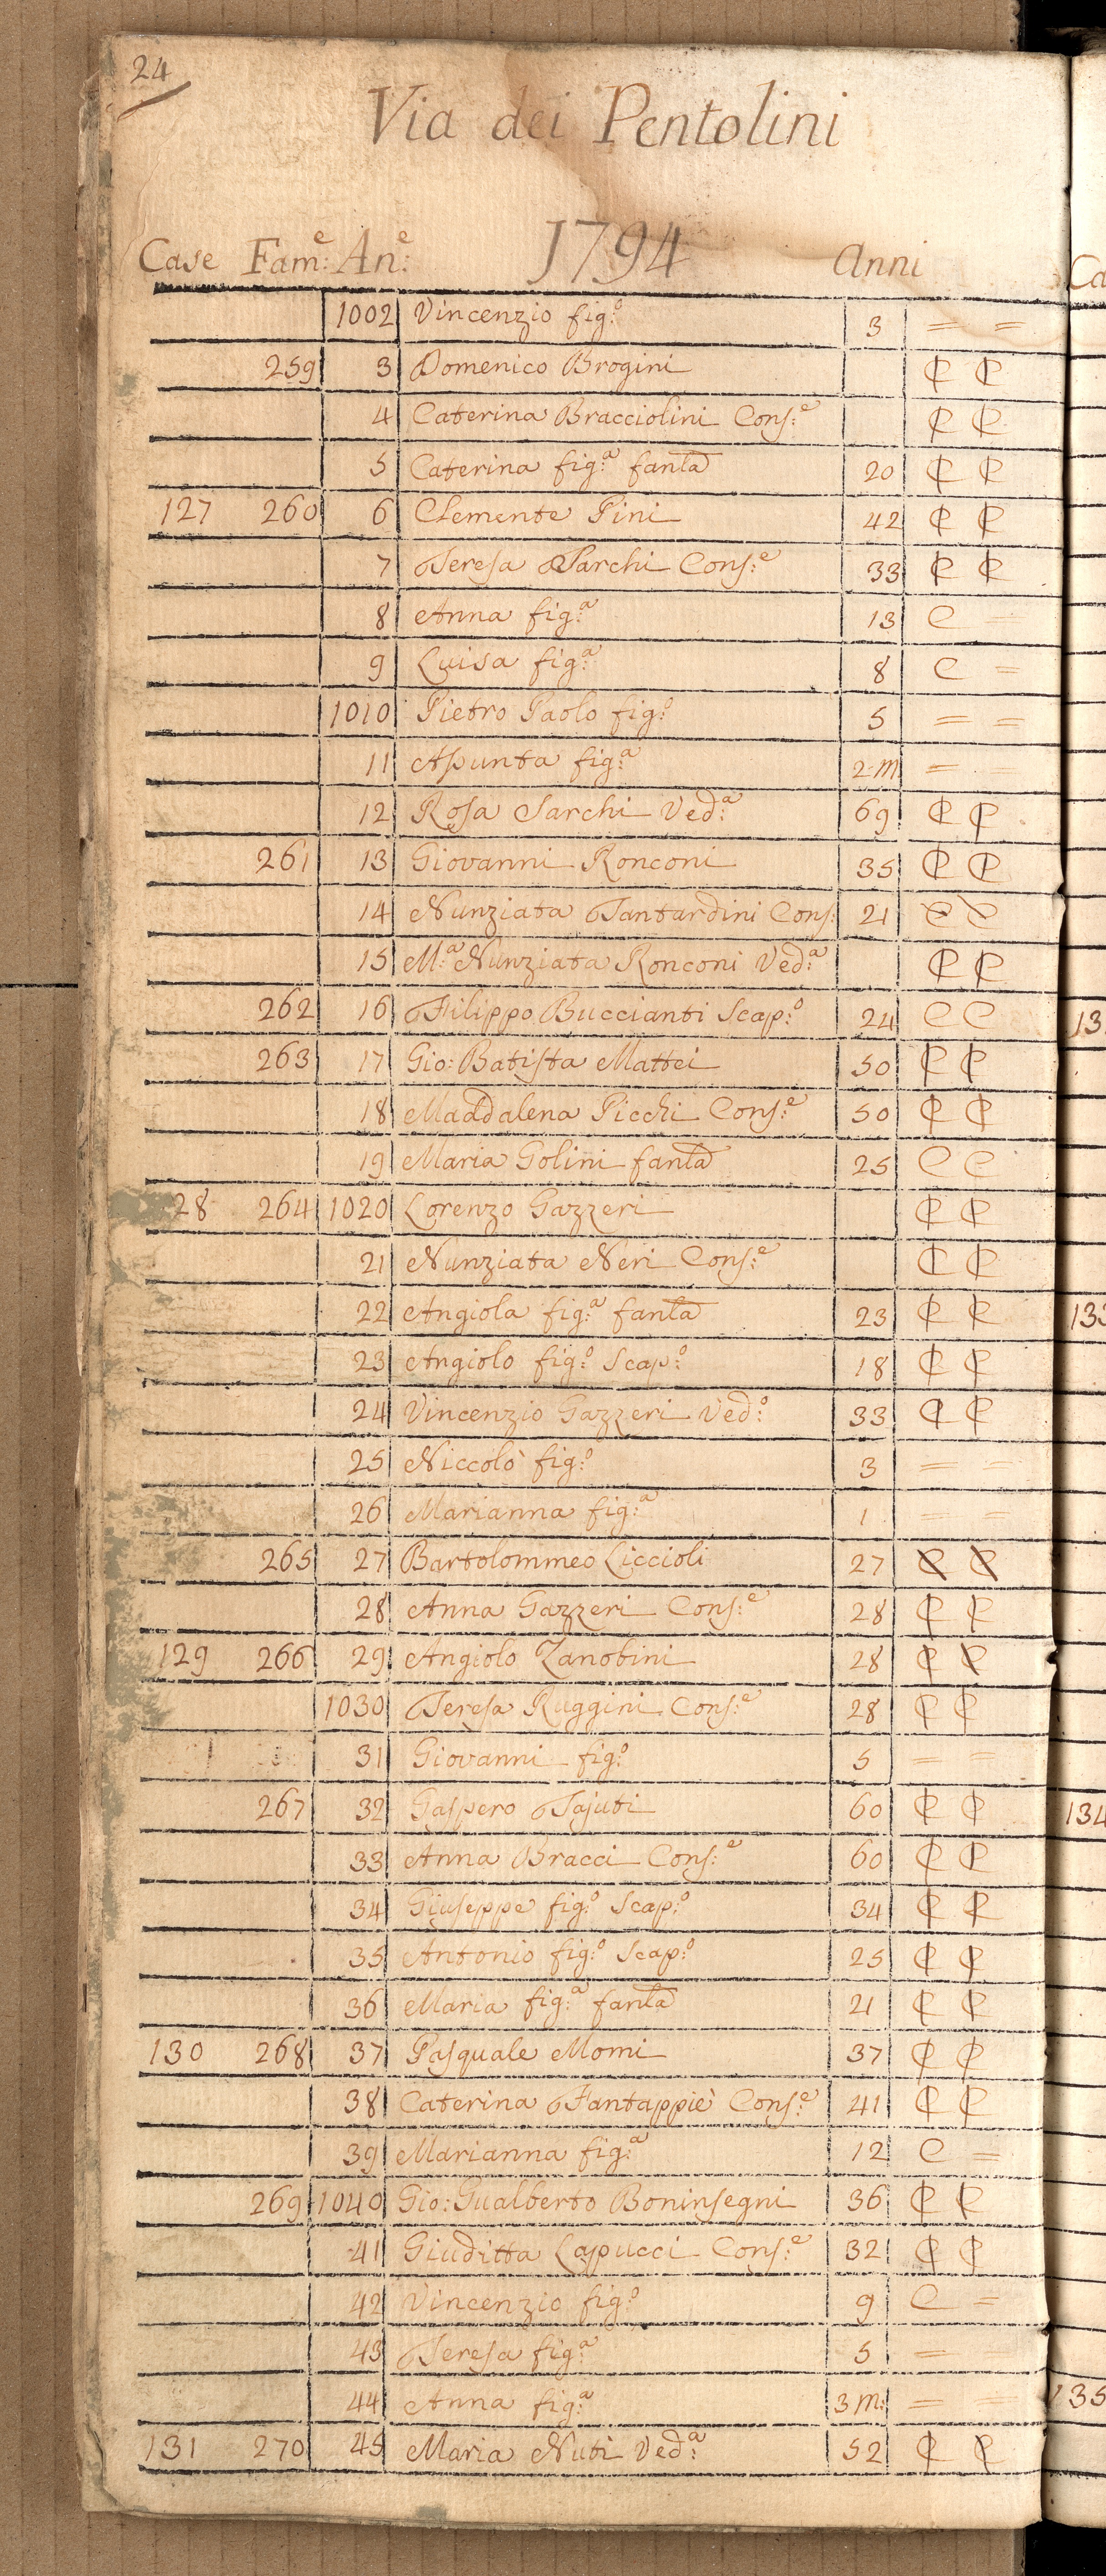 24
Via dei Pentolini
Case Fam:e An:e 1794 Anni
1002 Vincenzio fig:o 3 = =
259 3 Domenico Brogini C C
4 Caterina Bracciolini Cons:e C C
5 Caterina fig:a fanla 20 C C
127 260 6 Clemente Pini 42 C C
7 Teresa Sarchi Cons:e 33 C C
8 Anna fig:a 13 C =
9 Luisa fig:a 8 C =
1010 Pietro Paolo fig:o 5 = =
11 Asunta fig:a 2 m = =
12 Rosa Sarchi Ved:a 69 C C
261 13 Giovanni Ronconi 35 C C
14 Nunziata Tantardini Cons: 21 C C
15 M:a Nunziata Ronconi Ved:a C C
262 16 Filippo Buccianti Scap:o 24 C C
263 17 Gio: Batista Mattei 50 C C
18 Maddalena Picchi Cons:e 50 C C
19 Maria Golini fanla 25 C C
28 264 1020 Lorenzo Gazzeri C C
21 Nunziata Neri Cons:e C C
22 Angiola fig:a fanla 23 C C
23 Angiolo fig:o Scap:o 18 C C
24 Vincenzio Gazzeri Ved:o 33 C C
25 Niccolò fig:o 3 = =
26 Marianna fig:a 1 = =
265 27 Bartolommeo Liccioli 27 C C
28 Anna Gazzeri Cons:e 28 C C
129 266 29 Angiolo Zanobini 28 C C
1030 Teresa Ruggini Cons:e 28 C C
31 Giovanni fig:o 5 = =
267 32 Gaspero Tajuti 60 C C
33 Anna Bracci Cons:e 60 C C
34 Giuseppe fig:o Scap:o 34 C C
35 Antonio fig:o Scap:o 25 C C
36 Maria fig:a fanla 21 C C
130 268 37 Pasquale Momi 37 C C
38 Caterina Fantappiè Cons:e 41 C C
39 Marianna fig:a 12 C =
269 1040 Gio: Gualberto Boninsegni 36 C C
41 Giuditta Lapucci Cons:e 32 C C
42 Vincenzio fig:o 9 C =
43 Teresa fig:a 5 = =
44 Anna fig:a 3 m: = =
131 270 45 Maria Nuti Ved:a 52 C C
Ca
13
133
134
135